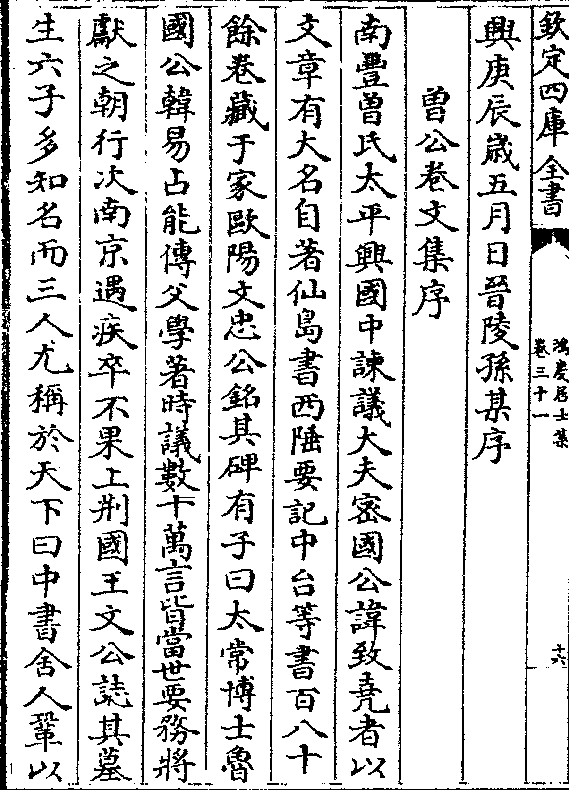 欽定四庫全書
鴻慶居士集
卷三十一
十六
興庚辰歲五月日晉陵孫某序
曽公卷文集序
南豐曽氏太平興國中諫議大夫宻國公諱致堯者以
文章有大名自著仙島書西陲要記中台等書百八十
餘卷藏于家歐陽文忠公銘其碑有子曰太常博士魯
國公韓易占能傳父學著時議數十萬言皆當世要務將
獻之朝行次南京遇疾卒不果上荆國王文公誌其墓
生六子多知名而三人尤稱於天下曰中書舍人鞏以